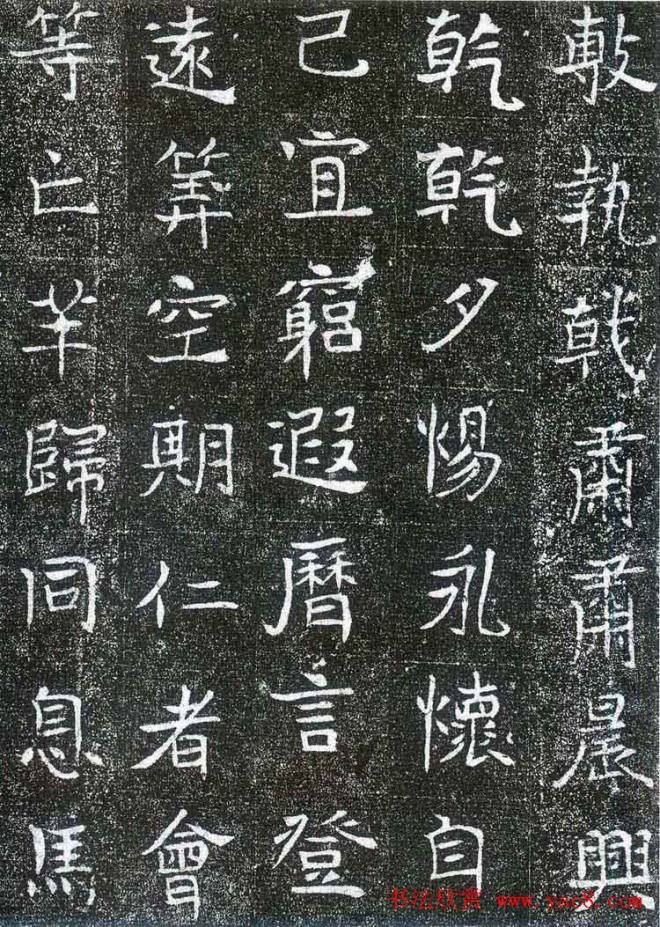 執戟肅肅晨興
乾乾夕惕永懷自
己宜窮遐曆言登
遠筭空期仁者會
等亡羊歸同息馬
书法欣赏 www.yac8.com